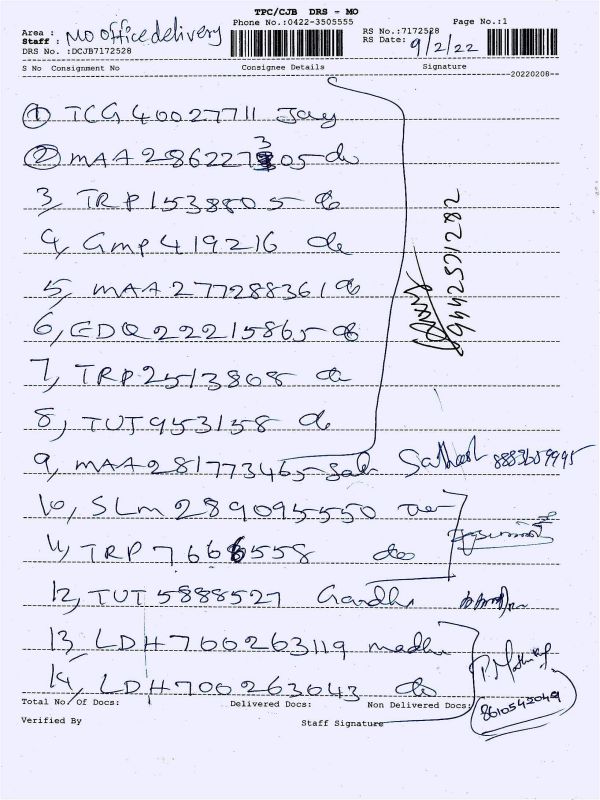 TPC/CJB DRS - MO
Area :
Staff : MO office delivery
Phone No.:0422-3505555
Page No.:1
RS No.:7172528
RS Date: 9/2/22
DRS No.:DCJB7172528
S No Consignment No Consignee Details Signature
--20220208--
1 TCG 40027711 Jay
2 MAA 286227305 do
3, TRP 1538805 do
4, GMP 419216 do
5, MAA 277288361 do
6, EDQ 22215865 do
7, TRP 2513808 do
8, TUT 953158 do
9442531282
9, MAA 281773465 Satheesh 8883659995
10, SLM 289095550
11, TRP 7666558 do
12, TUT 5888527 Gandhi
13, LDH 700263119 madhu
14, LDH 700263043 do
8610542049
Total No. Of Docs: Delivered Docs: Non Delivered Docs:
Verified By Staff Signature